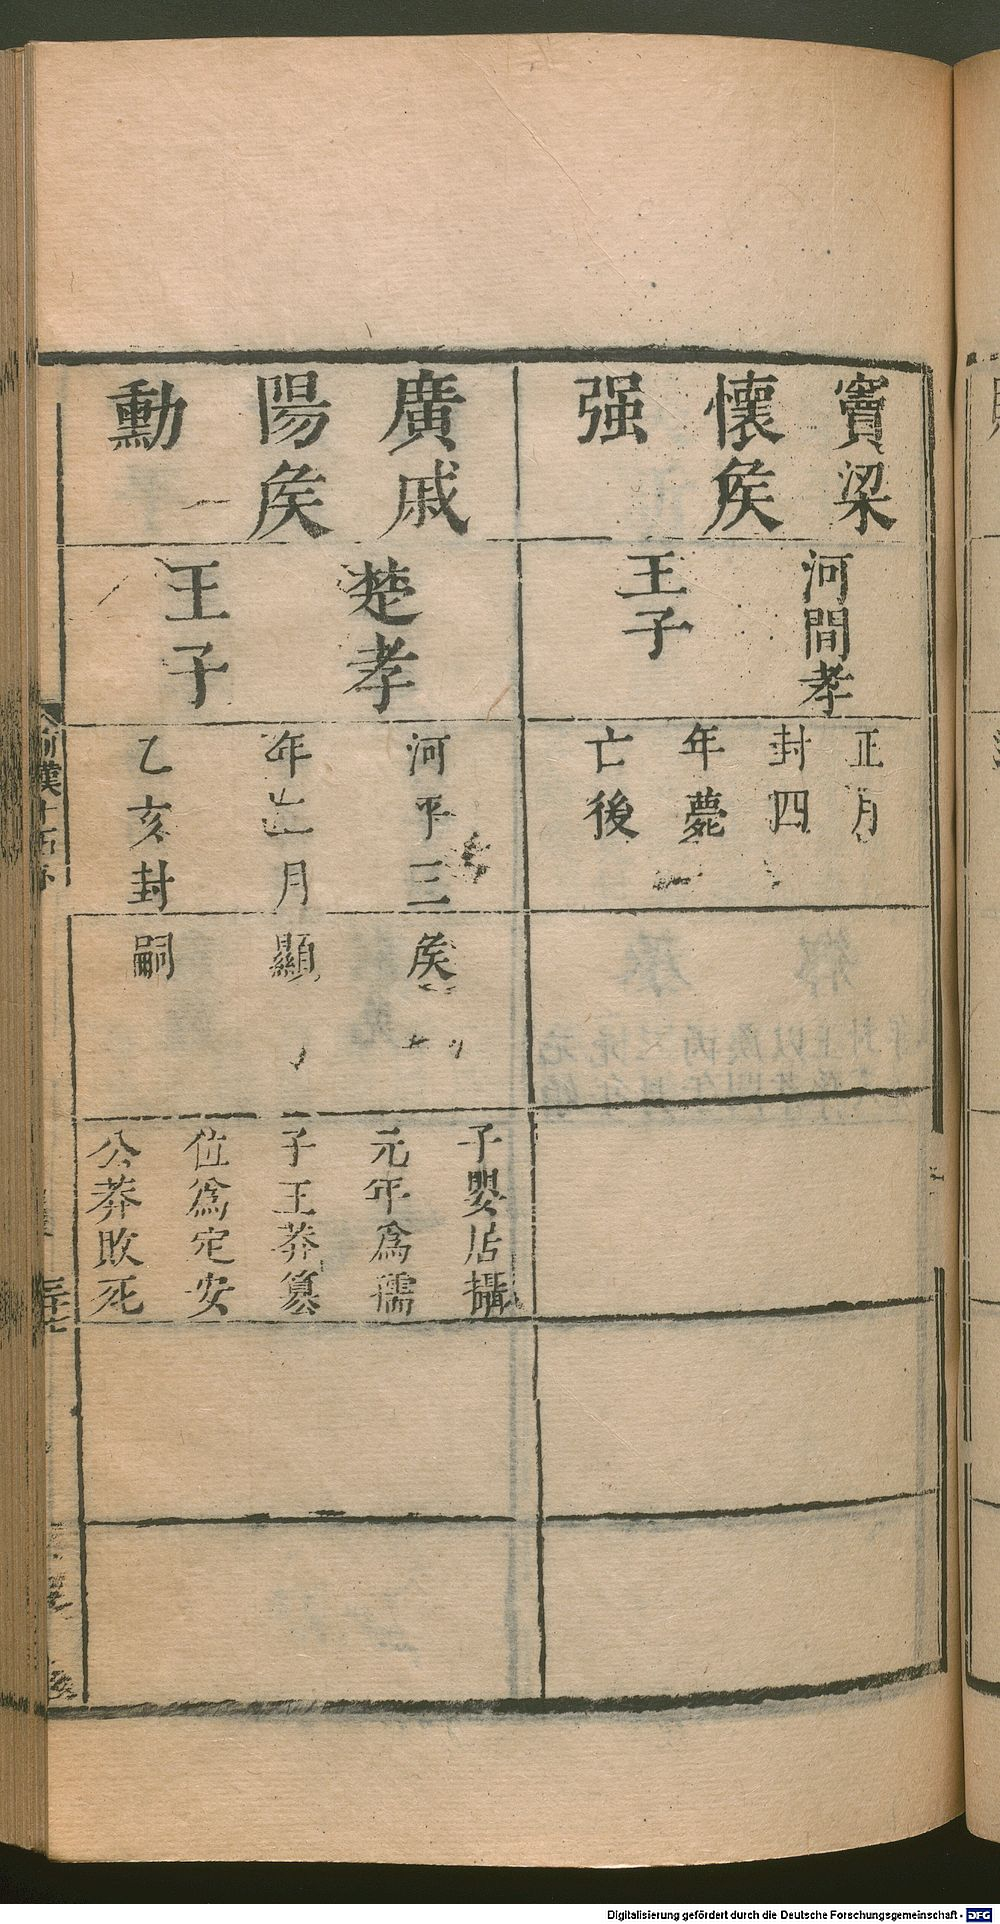 竇梁
懷矦
强
河間孝
王子
正月
封四
年薨
亡後
廣戚
陽矦
勳
楚孝
王子
河平三
年正月
乙亥封
矦
顯
嗣
子嬰居攝
元年爲孺
子王莽篡
位爲定安
公莽敗死
Digitalisierung gefördert durch die Deutsche Forschungsgemeinschaft - DFG